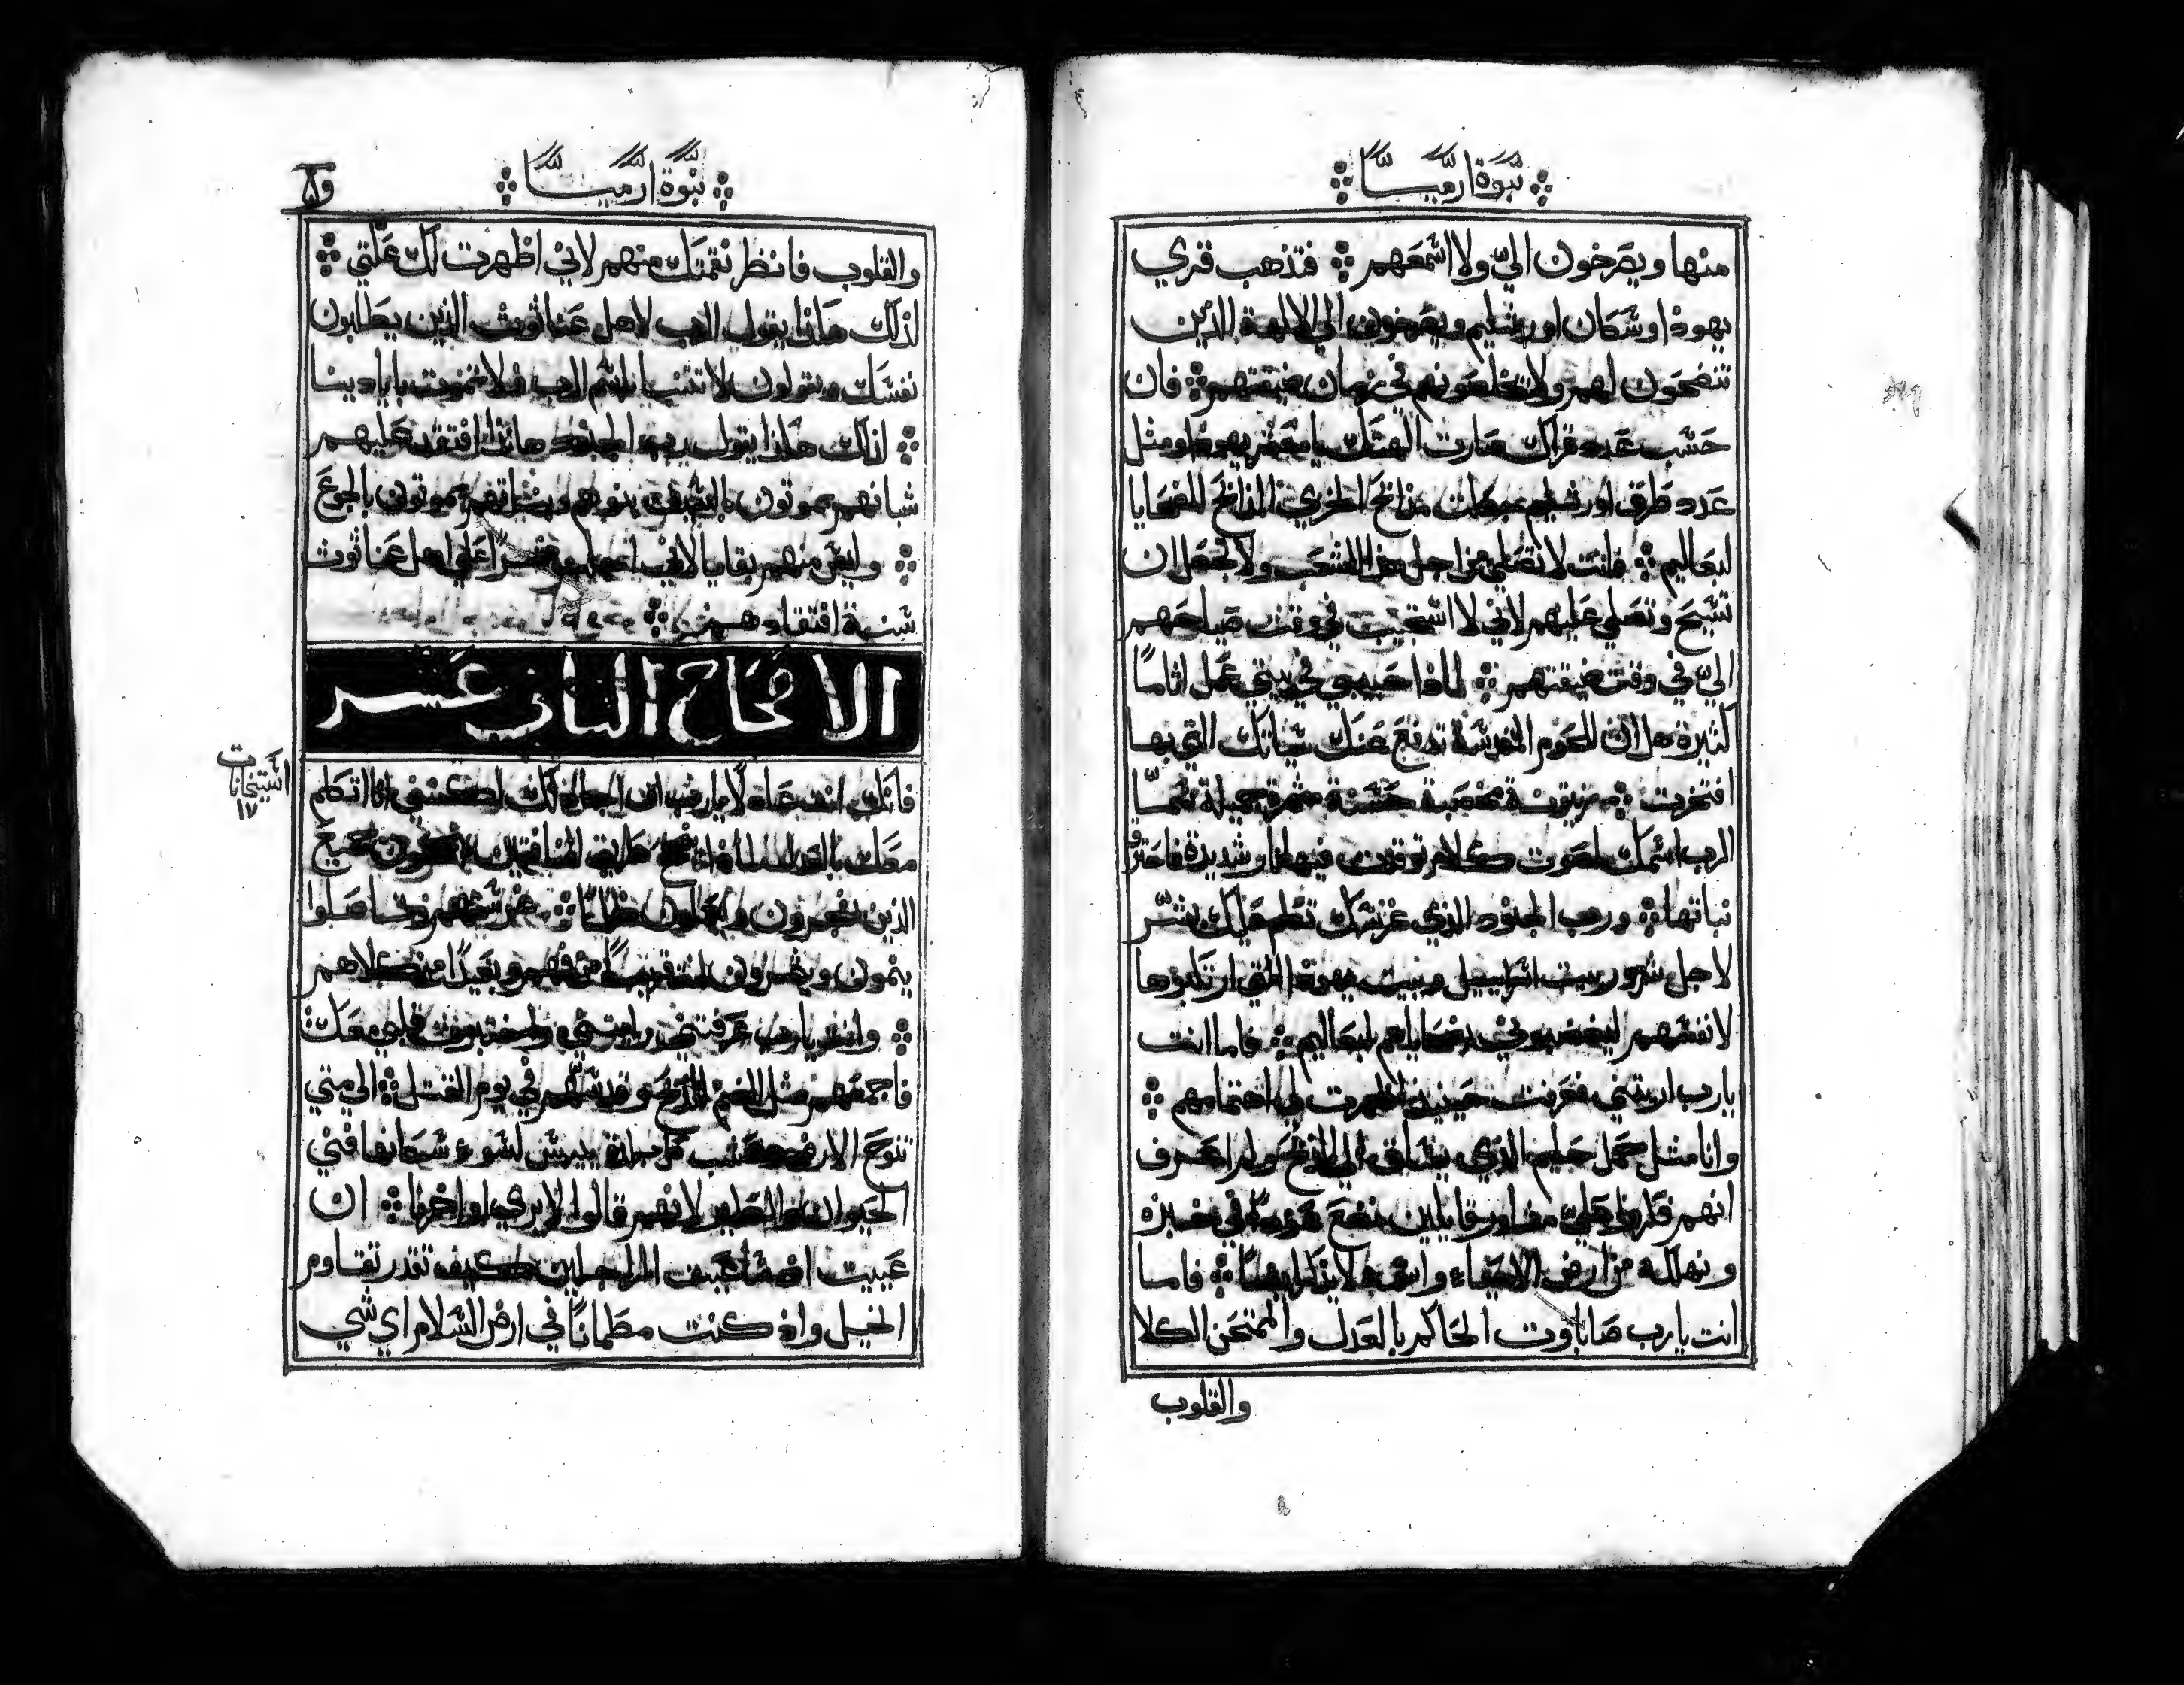 نبوة ارميا
منها ويصرخون اليّ ولا اسمعهم فتذهب قري
يهوذا وسكان اورشليم ويصرخون الي الالهة الذين
تنضحون لهم ولا يخلصونهم في زمان ضيقتهم فان
حسب عدد قراك صارت الهتك يا يهوذا ومثل
عدد طرق اورشليم مذابح الخزي المذابح للضحايا
لبعاليم فانت لا تصلي من اجل هذا الشعب ولا تجعل ان
تسبح وتصلي عليهم لاني لا استجيب في وقت صياحهم
اليّ في وقت ضيقتهم لماذا حبيبي في بيتي عمل اثامًا
كثيرة هل ان اللحوم المقدسة تدفع عنك سياتك التي بها
افتخرت زيتونة مخصبة حسنة مثمرة جميلة سمّا
الرب اسمك لصوت كلام توقدت فيها نار شديدة فاحترق
نباتها ورب الجنود الذي غرسك تكلم عليك بشر
لاجل شرور بيت اسراييل وبيت يهوذا التي ارتكبوها
لانفسهم ليغضبوني بضحاياهم لبعاليم فاما انت
يارب اريتني فعرفت حينيذ اظهرت لي اهتمامهم
وانا مثل حمل حليم الذي يساق الي الذبح ولم اعرف
انهم فكروا عليّ مشاورة قايلين نضع عودًا في خبزه
ونهلكه من ارض الاحياء واسمه لا يذكر ايضًا فاما
انت يارب صاباوت الحاكم بالعدل والممتحن الكلا
والقلوب
نبوة ارميا
والقلوب فانظر نقمتك منهم لاني اظهرت لك علتي
لذلك هكذا يقول الرب لاهل عناثوث الذين يطلبون
نفسك ويقولون لا تتنبا باسم الرب فلا تموت بايادينا
لذلك هكذا يقول رب الجنود هانذا افتقد عليهم
شبانهم يموتون بالسيف بنوهم وبناتهم يموتون بالجوع
وليس منهم بقايا لاني شرا علي اهل عناثوث
سنة افتقادهم
الافتحاح الثاني عشر
استيخانات
١٧
فانك انت عادلًا يارب ان اجادلك لكنني انا اتكلم
معك بالعدل لماذا تنجح طريق المنافقين جميع
الذين يفجرون ويعملون ظلمًا غرستهم وتاصلوا
ينمون ويثمرون انت قريبًا من فمهم وبعيدًا من كلاهم
وانت يارب عرفتني رايتني واختبرت قلبي معك
فاجمعهم مثل الغنم للذبح وقدسهم في يوم القتل الي متي
تنوح الارض وعشب كل بلدة ييبس لسوء سكانها فني
الحيوان والطير لانهم قالوا لا يري اواخرنا ان
عييت الراجلين كيف تقدر تقاوم
الخيل واذ كنت مطمانًا في ارض السلام اي شي